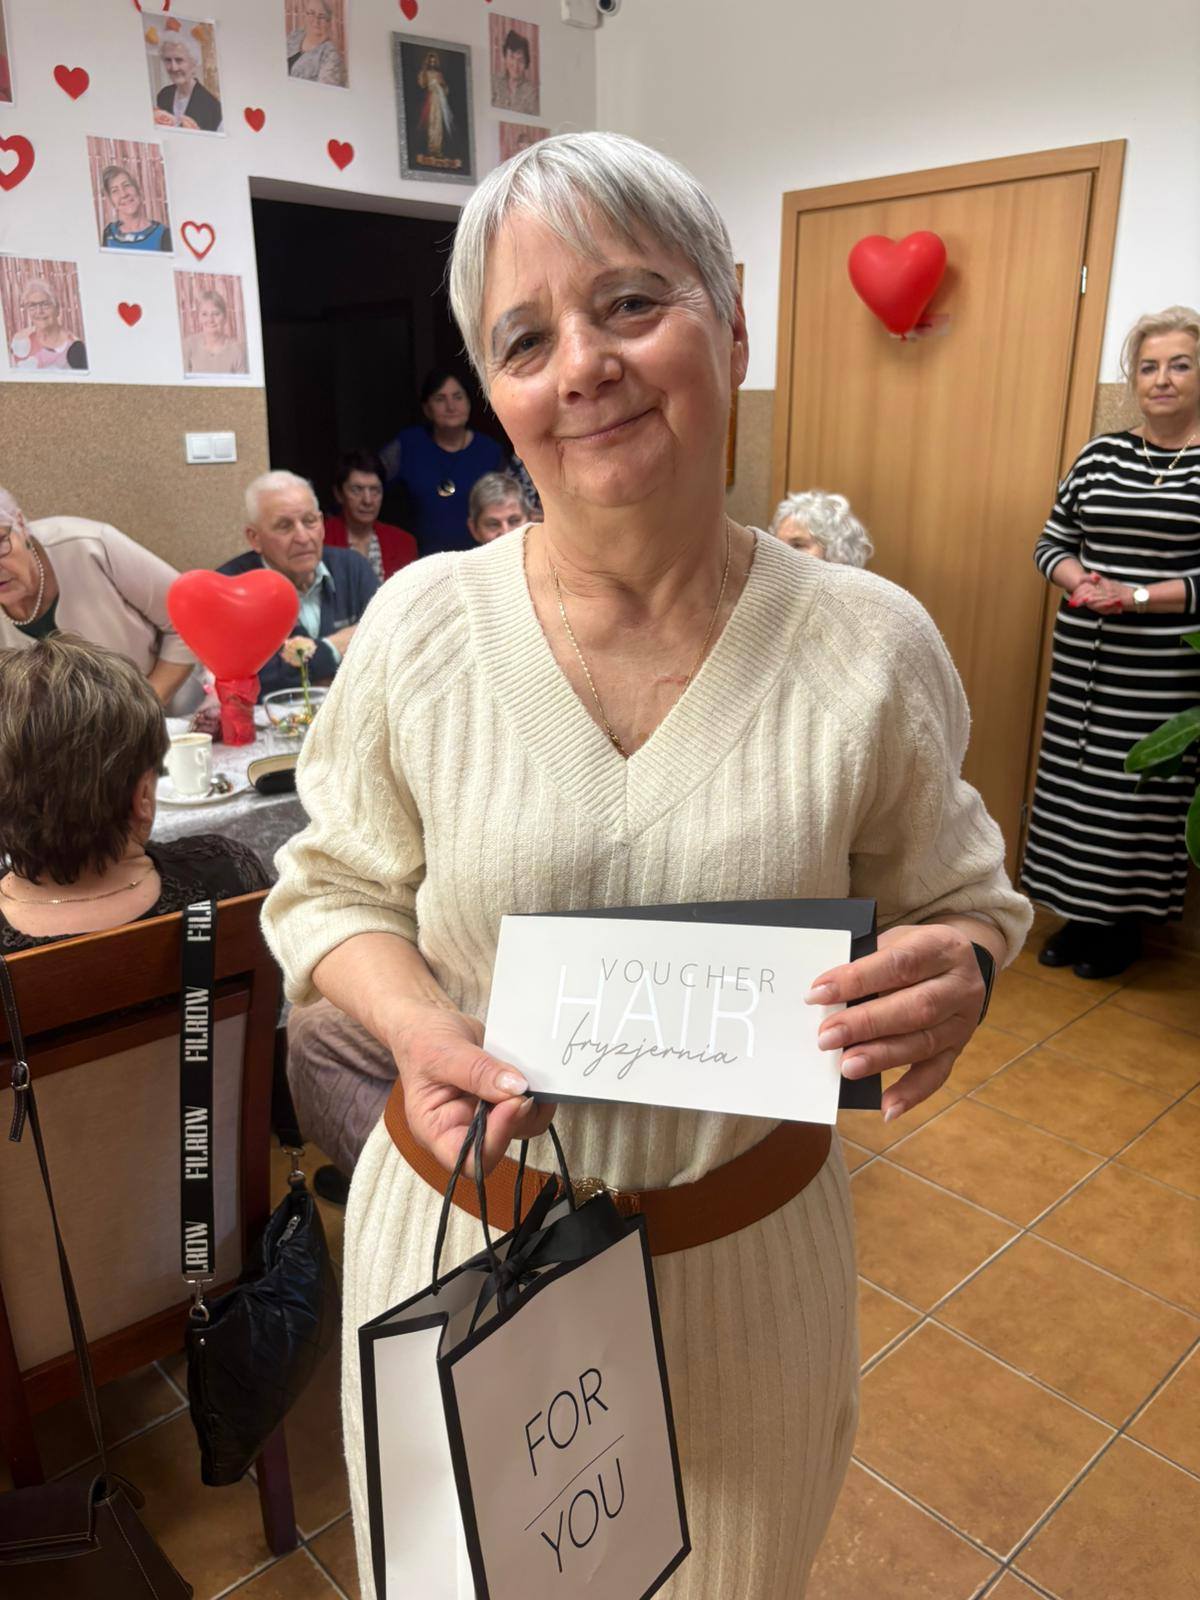 VOUCHER
HAIR
fryzjernia
FOR
YOU
FILROW
FILROW
FILROW
FILROW